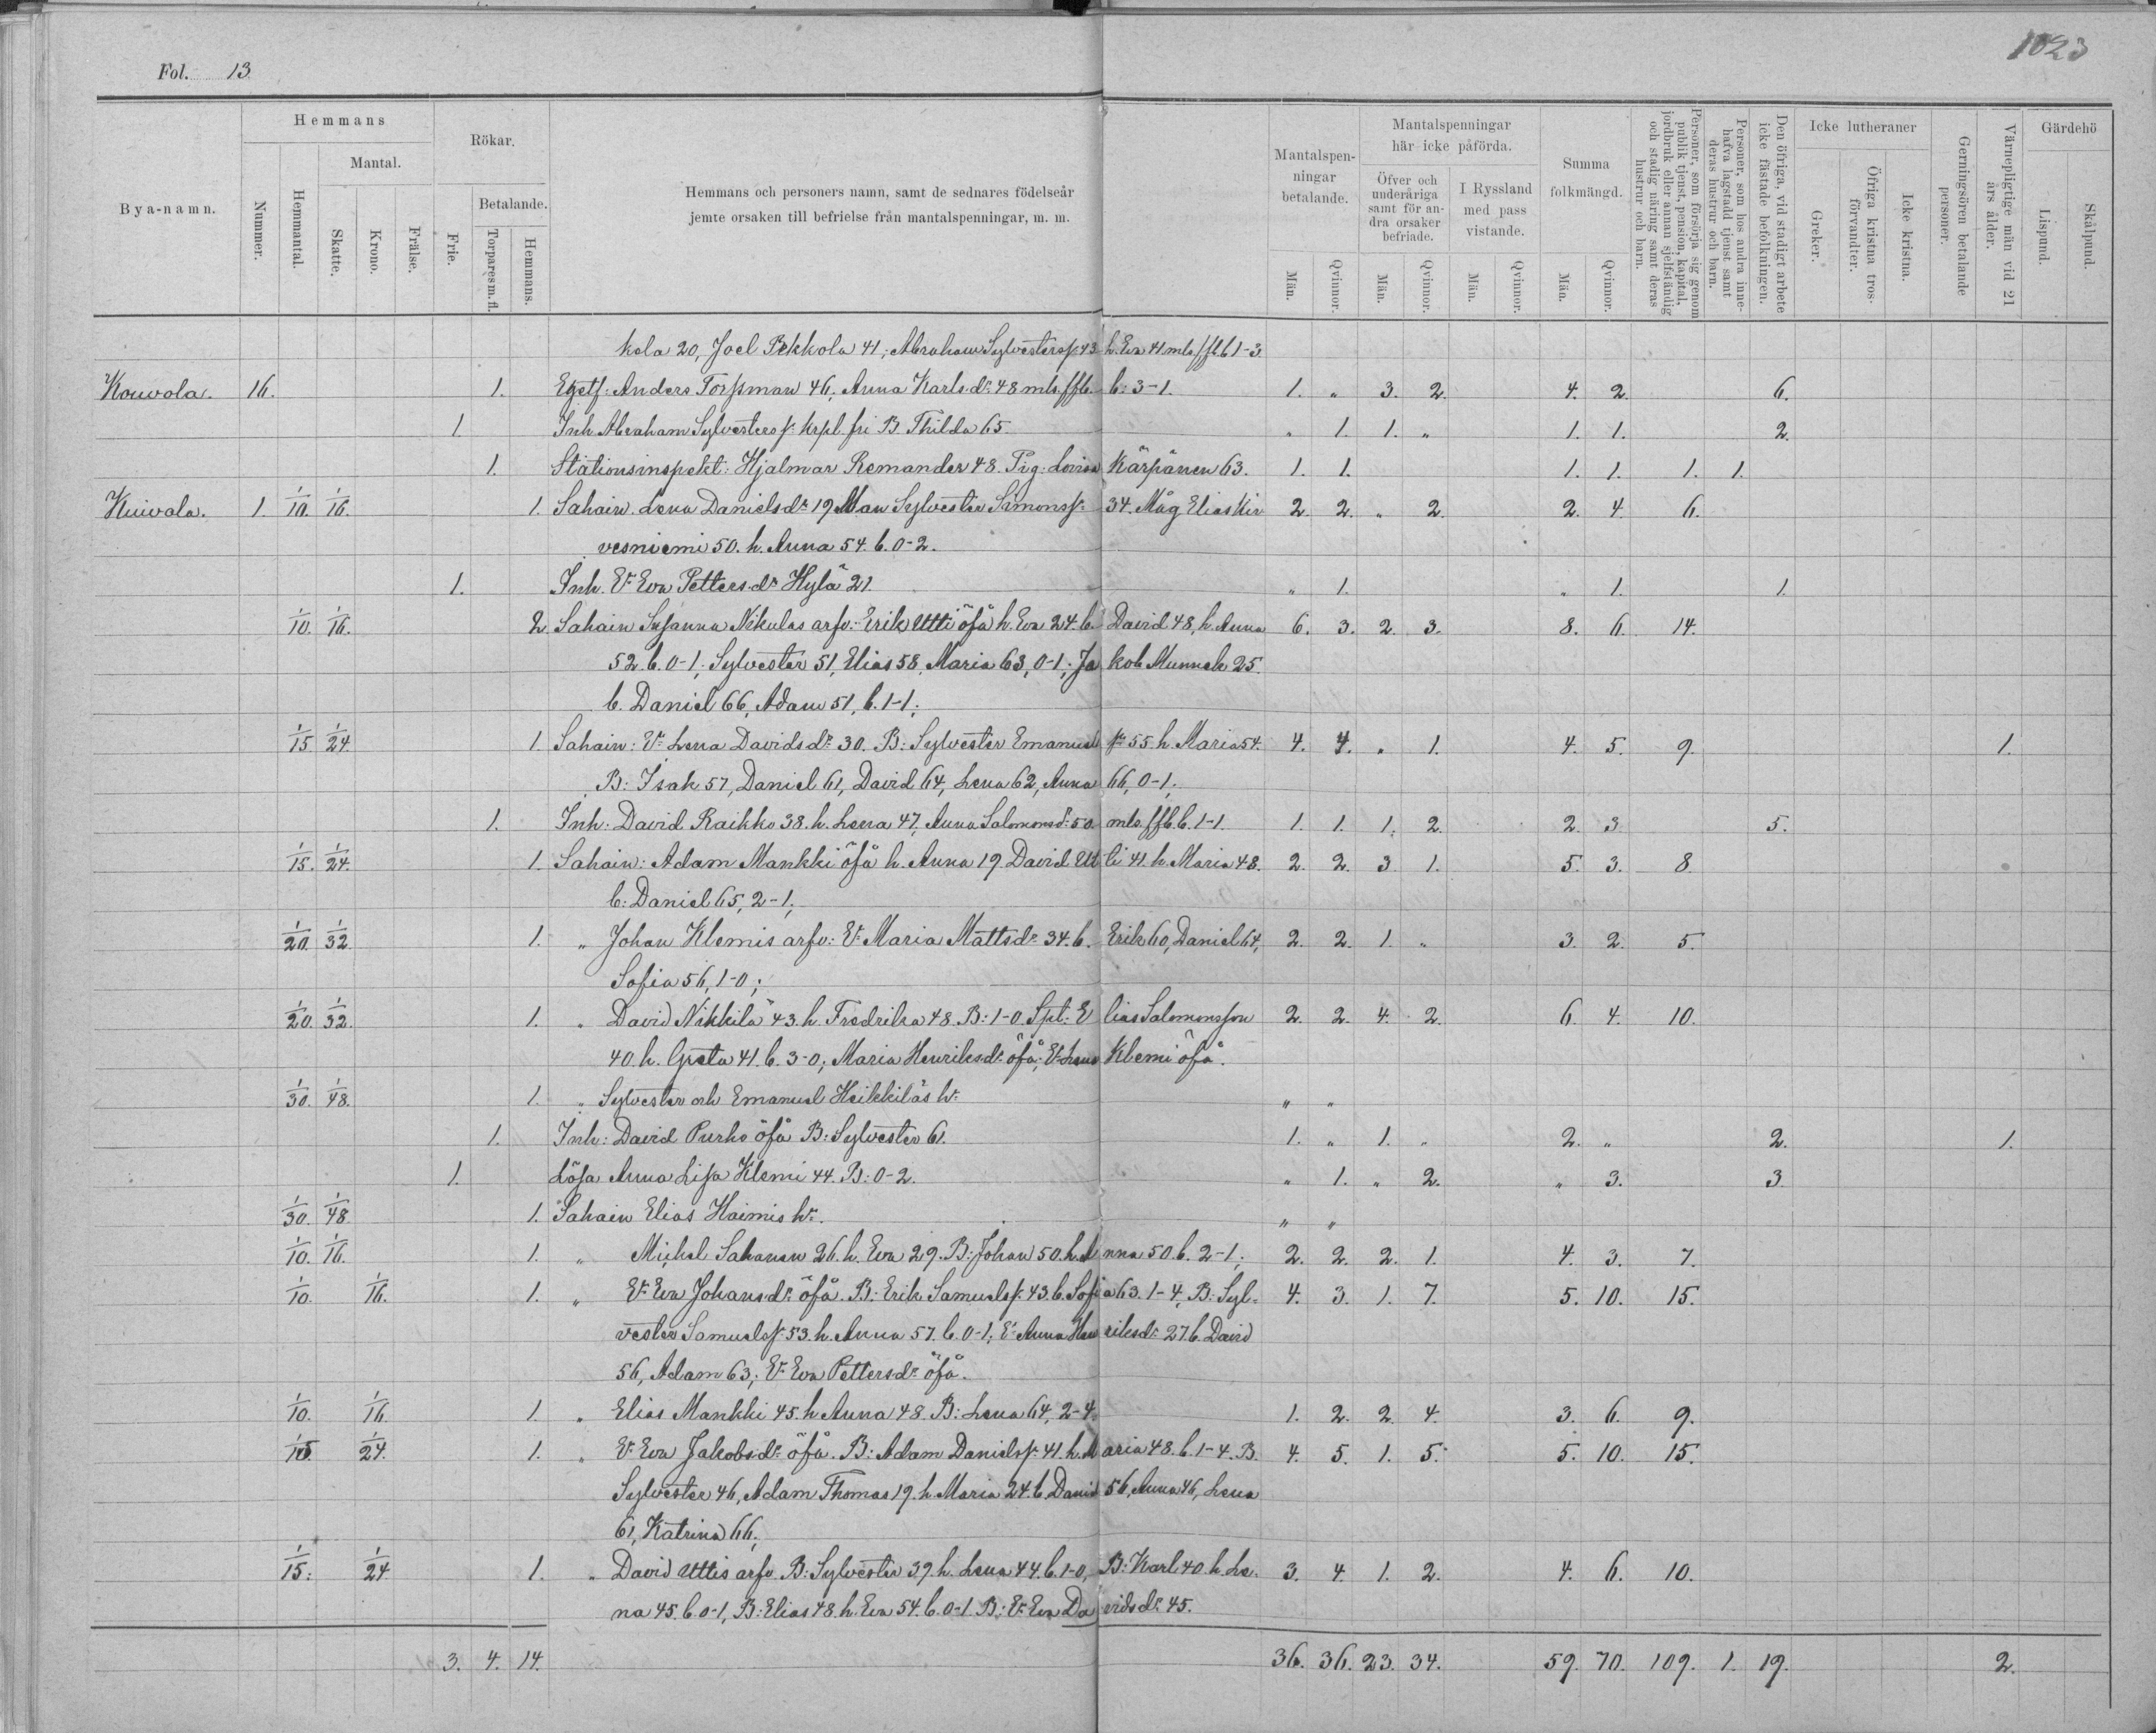 1023
Fol. 13
Bya-namn.
Hemmans
Nummer.
Hemmantal.
Mantal.
Skatte.
Krono.
Frälse.
Rökar.
Frie.
Betalande.
Torpare m. fl.
Hemmans.
Hemmans och personers namn, samt de sednares födelseår
jemte orsaken till befrielse från mantalspenningar, m. m.
Mantalspen-
ningar
betalande.
Män.
Qvinnor.
Mantalspenningar
här icke påförda.
Öfver och
underåriga
samt för an-
dra orsaker
befriade.
Män.
Qvinnor.
I Ryssland
med pass
vistande.
Män.
Qvinnor.
Summa
folkmängd.
Män.
Qvinnor.
Personer, som försörja sig genom
publik tjenst, pension, kapital,
jordbruk eller annan sjelfständig
och stadig näring samt deras
hustrur och barn.
Personer, som hos andra inne-
hafva lagstadd tjenst samt
deras hustrur och barn.
Den öfriga, vid stadigt arbete
icke fästade befolkningen.
Icke lutheraner
Greker.
Öfriga kristna tros-
förvandter.
Icke kristna.
Gerningsören betalande
personer.
Värnepligtige män vid 21
års ålder.
Gärdehö
Lispund.
Skålpund.
kola 20, Joel Pekkola 41; Abraham Sylvestersſ. 43 h. Eva 41 mls ſfl b 1-3
Kouvola. 16. 1. Anders Forſsman 46, Anna Karlsdr. 48 mls. ſfb. b: 3-1. 1. " 3. 2. 4. 2. 6.
1. Inh. Abraham Sylvestersſ. krpl. fri B. Thilda 65 " 1. 1. " 1. 1. 2.
1. Stationsinspekt: Hjalmar Remander 48. Pig: Lovisa Kärpänen 63. 1. 1. 1. 1. 1. 1.
Kuivala. 1. 1/10. 1/16. 1. Sahain. Lena Danielsdr. 19 Man Sylvester Simonsſ. 34. Måg Elias Kir 2. 2. " 2. 2. 4. 6.
vesniemi 50. h. Anna 54. b. 0-2.
1. Inh. E: Eva Pettersdr. Hylä 21. " 1. " 1. 1.
1/10. 1/16. 2. Sahain Suſanna Nikulas arfv: Erik Utti öfå h. Eva 24. b. David 48, h. Anna 6. 3. 2. 3. 8. 6. 14.
52. b. 0-1; Sylvester 51, Elias 58, Maria 63, 0-1; Ja kob Munnek 25.
b. Daniel 66, Adam 51, b. 1-1;
1/15 1/24. 1. Sahain: E: Lena Davidsdr. 30. B: Sylvester Emanuels ſn 55. h. Maria 54. 4. 4. " 1. 4. 5. 9. 1.
B: Isak 57, Daniel 61, David 64, Lena 62, Anna 66, 0-1;
1. Inh: David Raikko 38. h. Lena 47, Anna Salomonsd: 50 mls. ſfb. b. 1-1. 1. 1. 1. 2. 2. 3. 5.
1/15. 1/24. 1. Sahain: Adam Mankki öfå h. Anna 19. David Ut ti 41. h. Maria 48. 2. 2. 3 1. 5. 3. 8.
b: Daniel 65, 2-1;
1/20. 1/32. 1. " Johan Klemis arfv: E: Maria Mattsdr. 34. b. Erik 60, Daniel 64, 2. 2. 1. " 3. 2. 5.
Sofia 56, 1-0;
1/20. 1/32. 1. " David Nikkilä 43. h. Fredrika 48. B: 1-0. Spt: E lias Salomonsſon 2. 2. 4. 2. 6. 4. 10.
40. h. Greta 41. b. 3-0; Maria Henriksdr. öfå; E: Lena Klemi öfå.
1/30. 1/48. 1. " Sylvester och Emanuel Heikkiläs hr. " "
1. Inh: David Purho öfå B: Sylvester 61. 1. " 1. " 2. " 2. 1.
1. Löſa Anna Liſa Klemi 44. B: 0-2. " 1. " 2. " 3. 3
1/30. 1/48 1. Sahain Elias Haimis hr. " "
1/10. 1/16. 1. " Michel Sahanen 26. h. Eva 29. B: Johan 50. h. A nna 50. b. 2-1; 2. 2. 2. 1. 4. 3. 7.
1/10. 1/16. 1. " E: Eva Johansdr. öfå. B: Erik Samuelsſ. 43. b. Sofi a 63. 1-4; B: Syl- 4. 3. 1. 7. 5. 10. 15.
vester Samuelsſ. 53. h. Anna 57. b. 0-1; E: Anna Hen riksdr. 27 b. David
56, Adam 63; E: Eva Pettersdr. öfå.
1/10. 1/16. 1. " Elias Mankki 45. h Anna 48. B: Lena 64, 2-4. 1. 2. 2. 4. 3. 6. 9.
1/15. 1/24. 1. " E: Eva Jakobsdr. öfå. B: Adam Danielsſ. 41. h. M aria 48. b. 1-4. B. 4. 5. 1. 5. 5. 10. 15.
Sylvester 46, Adam Thomas 19. h. Maria 24. b. David 56, Anna 46, Lena
61, Katrina 66;
1/15. 1/24 1. " David Uttis arfv. B: Sylvester 39. h. Lena 44. b. 1-0, B: Karl 40. h. Le- 3. 4. 1. 2. 4. 6. 10.
na 45. b. 0-1, B: Elias 48. h. Eva 54. b. 0-1. B: E: Eva Da vidsdr. 45.
3. 4. 14. 36. 36. 23. 34. 59. 70. 109. 1. 19. 2.